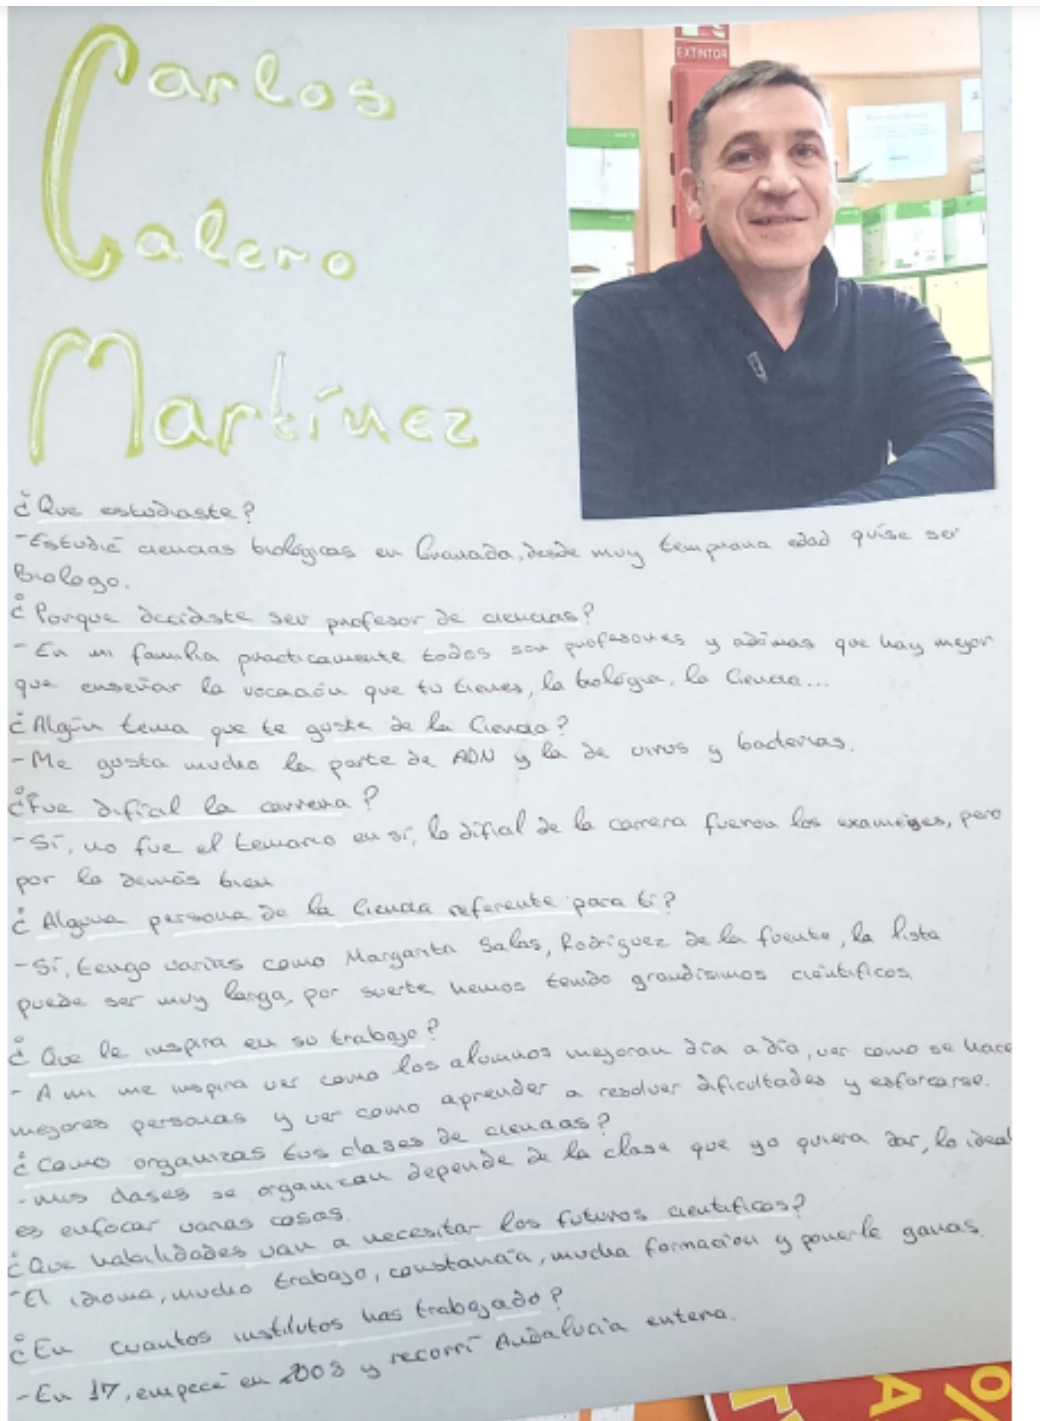 Carlos
Calero
Martínez
EXTINTOR
¿Que estudiaste?
-Estudié ciencias biológicas en Granada, desde muy temprana edad quise ser
Biologo.
¿Porque decidiste ser profesor de ciencias?
- En mi familia practicamente todos son profesores y además que hay mejor
que enseñar la vocación que tu tienes, la biológia, la Ciencia...
¿Algún tema que te guste de la Ciencia?
- Me gusta mucho la parte de ADN y la de virus y bacterias.
¿Fue dificial la carrera?
- Sí, no fue el temario en sí, lo dificial de la carrera fueron los examenes, pero
por lo demás bien
¿Alguna persona de la Ciencia referente para ti?
- Sí, tengo varias como Margarita Salas, Rodríguez de la fuente, la lista
puede ser muy larga, por suerte hemos tenido grandísimos científicos.
¿Que le inspira en su trabajo?
- A mi me inspira ver como los alumnos mejoran día a día, ver como se hace
mejores personas y ver como aprender a resolver dificultades y esforzarse.
¿Como organizas tus clases de ciencias?
- mis clases se organizan depende de la clase que yo quiera dar, lo ideal
es enfocar varias cosas.
¿Que habilidades van a necesitar los futuros científicos?
- El idioma, mucho trabajo, constancia, mucha formación y ponerle ganas.
¿En cuantos institutos has trabajado?
- En 17, empecé en 2008 y recorrí Andalucía entera.
% A